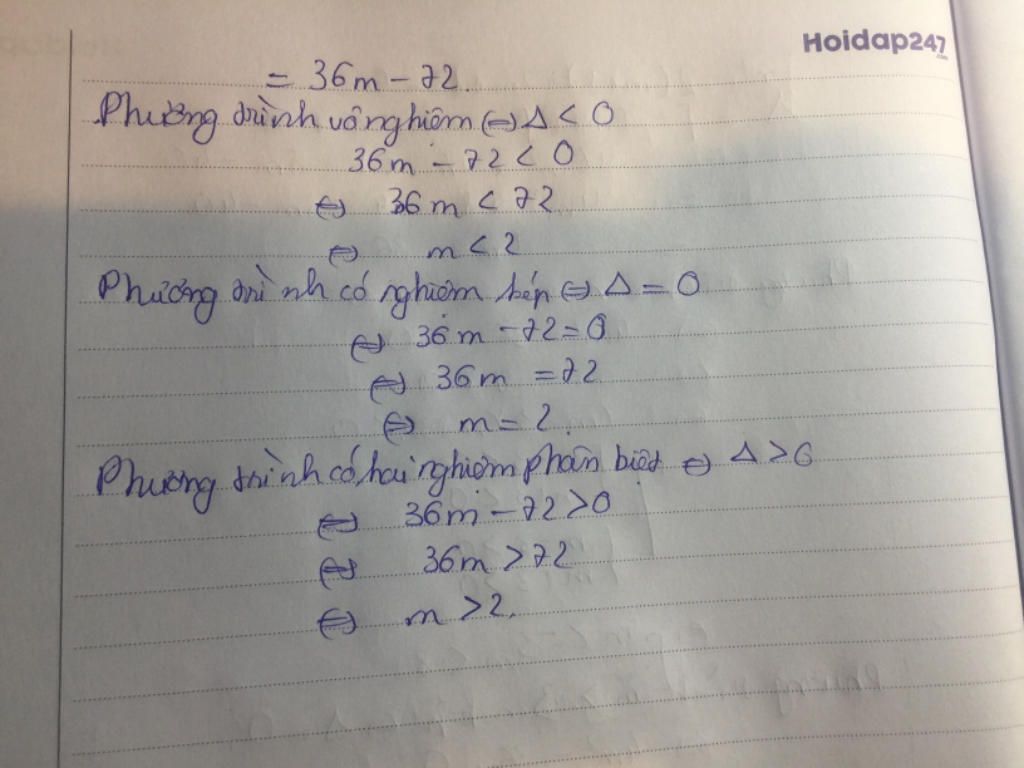 Hoidap247
.com
= 36m - 72.
Phương trình vô nghiệm ⇔ Δ < 0
36m - 72 < 0
⇔ 36m < 72
⇔ m < 2
Phương trình có nghiệm kép ⇔ Δ = 0
⇔ 36m - 72 = 0
⇔ 36m = 72
⇔ m = 2.
Phương trình có hai nghiệm phân biệt ⇔ Δ > 0
⇔ 36m - 72 > 0
⇔ 36m > 72
⇔ m > 2.